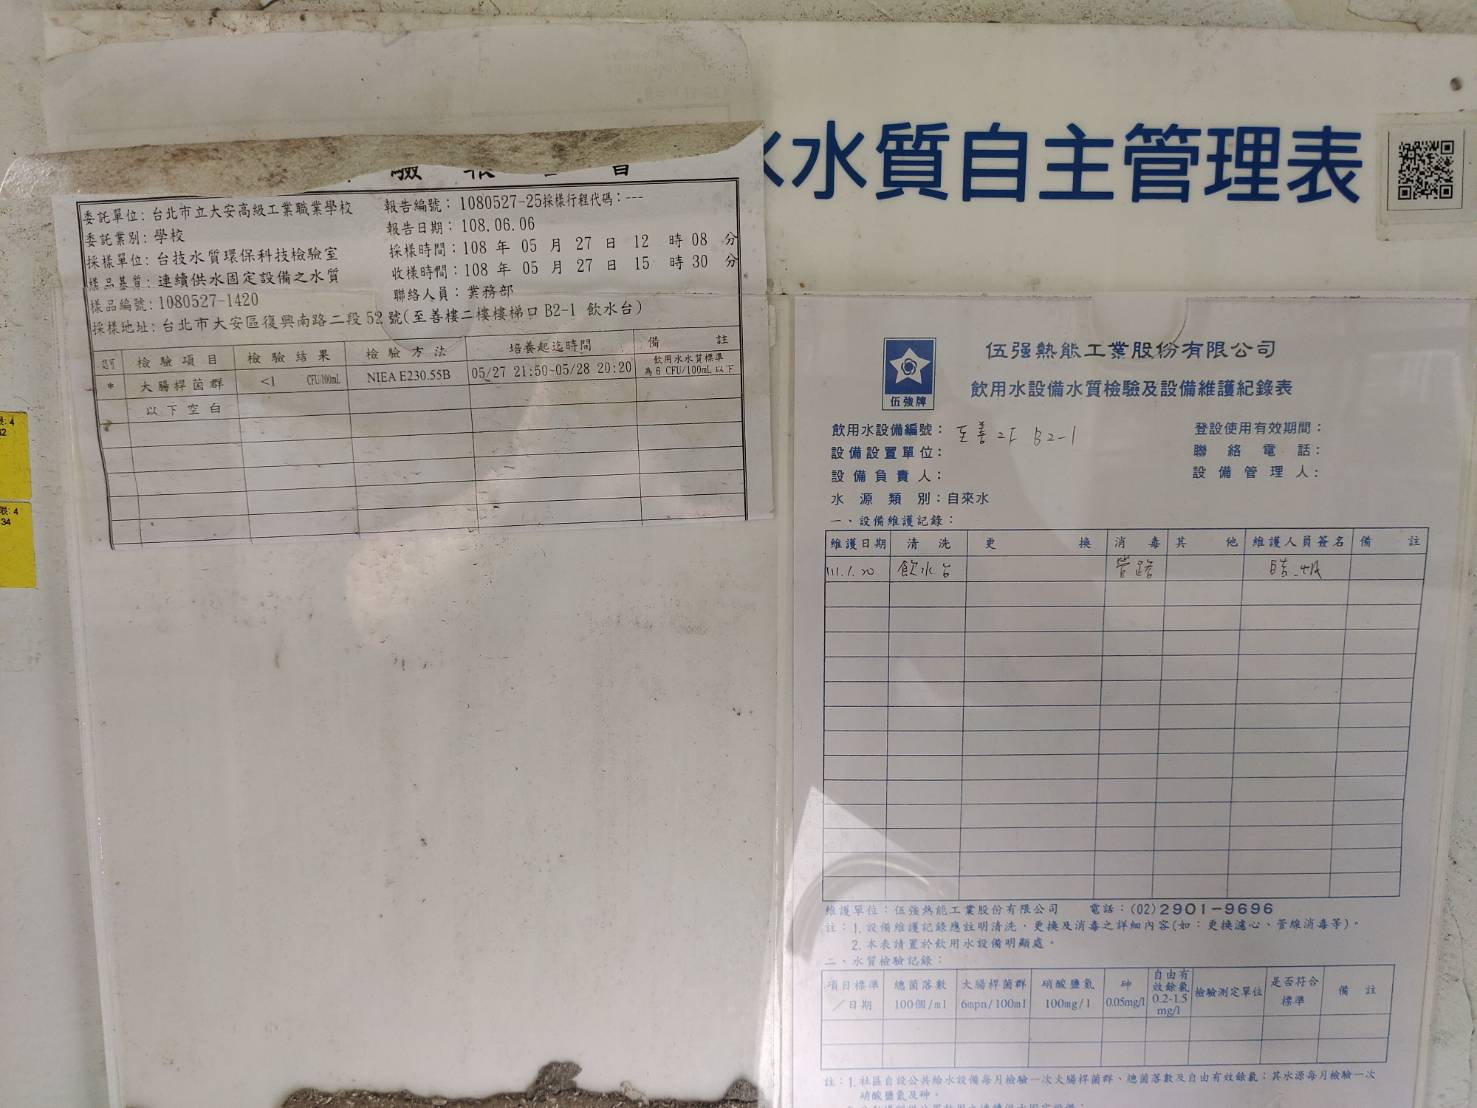 水質自主管理表
委託單位：台北市立大安高級工業職業學校
委託業別：學校
採樣單位：台技水質環保科技檢驗室
樣品基質：連續供水固定設備之水質
樣品編號：1080527-1420
採樣地址：台北市大安區復興南路二段52號(至善樓二樓樓梯口 B2-1 飲水台)
報告編號：1080527-25採樣行程代碼：---
報告日期：108.06.06
採樣時間：108 年 05 月 27 日 12 時 08 分
收樣時間：108 年 05 月 27 日 15 時 30 分
聯絡人員：業務部
檢驗項目 檢驗結果 檢驗方法 培養起迄時間 備註
* 大腸桿菌群 <1 CFU/100mL NIEA E230.55B 05/27 21:50~05/28 20:20 飲用水水質標準
為 6 CFU/100mL 以下
以下空白
伍強牌
伍強熱能工業股份有限公司
飲用水設備水質檢驗及設備維護紀錄表
飲用水設備編號：至善2F B2-1 登設使用有效期間：
設備設置單位： 聯絡電話：
設備負責人： 設備管理人：
水源類別：自來水
一、設備維護記錄：
維護日期 清洗 更換 消毒 其他 維護人員簽名 備註
111.1.20 飲水台 管路
維護單位：伍強熱能工業股份有限公司 電話：(02)2901-9696
註：1.設備維護記錄應註明清洗，更換及消毒之詳細內容(如：更換濾心、管線消毒等)。
2.本表請置於飲用水設備明顯處。
二、水質檢驗記錄：
項目標準／日期 總菌落數 100個/ml 大腸桿菌群 6mpn/100ml 硝酸鹽氮 100mg/l 砷 0.05mg/l 自由有效餘氯 0.2-1.5 mg/l 檢驗測定單位 是否符合標準 備註
註：1.社區自設公共給水設備每月檢驗一次大腸桿菌群、總菌落數及自由有效餘氯；其水源每月檢驗一次
硝酸鹽氮及砷。